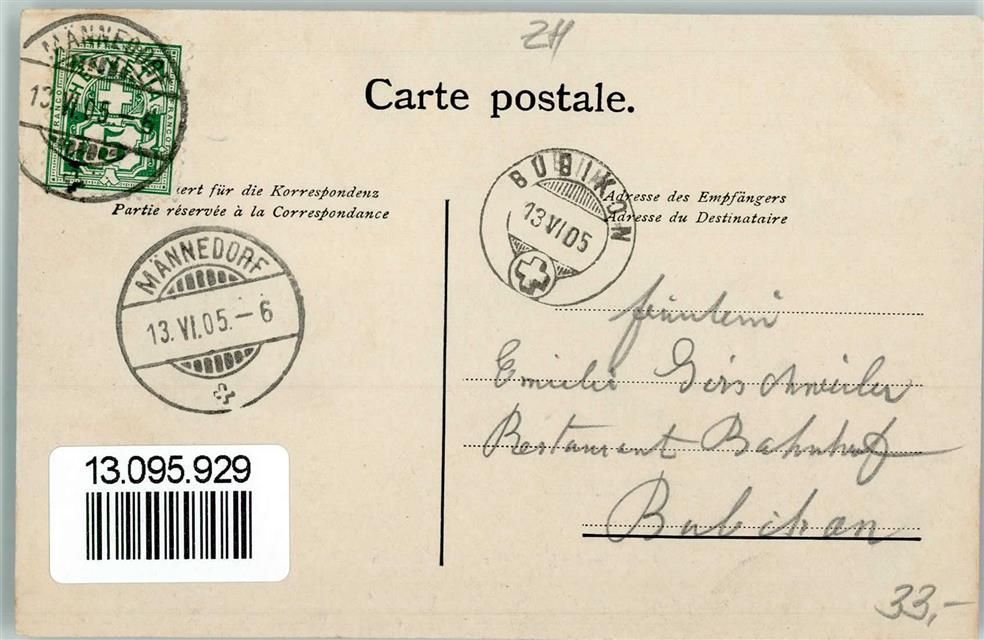 ZH
Carte postale.
MÄNNEDORF
13.VI.05.-6
FRANCO
FRANCO
ert für die Korrespondenz
Partie réservée à la Correspondance
BUBIKON
13 VI 05
Adresse des Empfängers
Adresse du Destinataire
MÄNNEDORF
13.VI.05.-6
Fräulein
Emilie Girschweiler
Restaurant Bahnhof
Bubikon
13.095.929
33,-